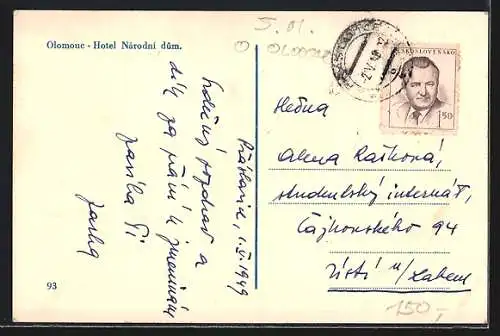 Olomouc - Hotel Národní dům.
5. 01.
O OLOMOUC
ČESKOSLOVENSKO
50
1949
Srdečný pozdrav a
dík za přání k jmeninám
zasílá Ti
Slečna
Alena Rašková,
studentský internát,
Čajkovského 94
Ústí n/Labem
93
150,-